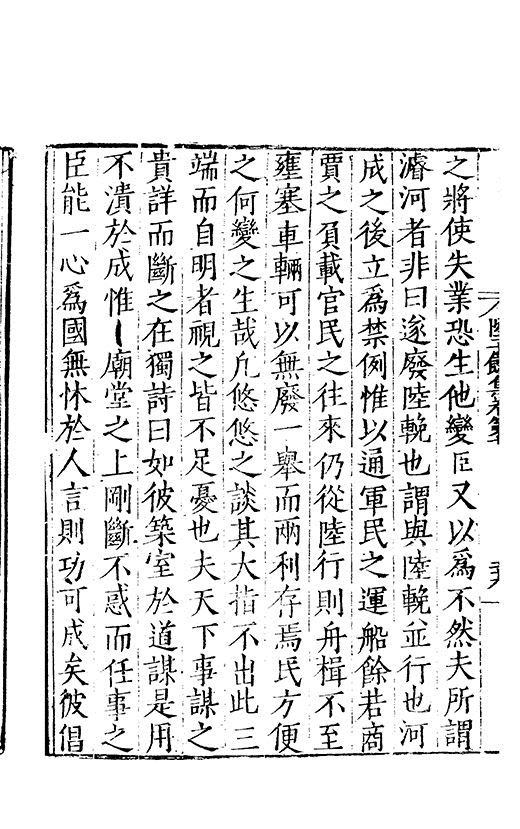 之將使失業恐生他變臣又以爲不然夫所謂
濬河者非曰遂廢陸輓也謂與陸輓並行也河
成之後立爲禁例惟以通軍民之運船餘若商
賈之負載官民之往來仍從陸行則舟楫不至
壅塞車輛可以無廢一舉而兩利存焉民方便
之何變之生哉凡悠悠之談其大指不出此三
端而自明者視之皆不足憂也夫天下事謀之
貴詳而斷之在獨詩曰如彼築室於道謀是用
不潰於成惟廟堂之上剛斷不惑而任事之
臣能一心爲國無怵於人言則功可成矣彼倡